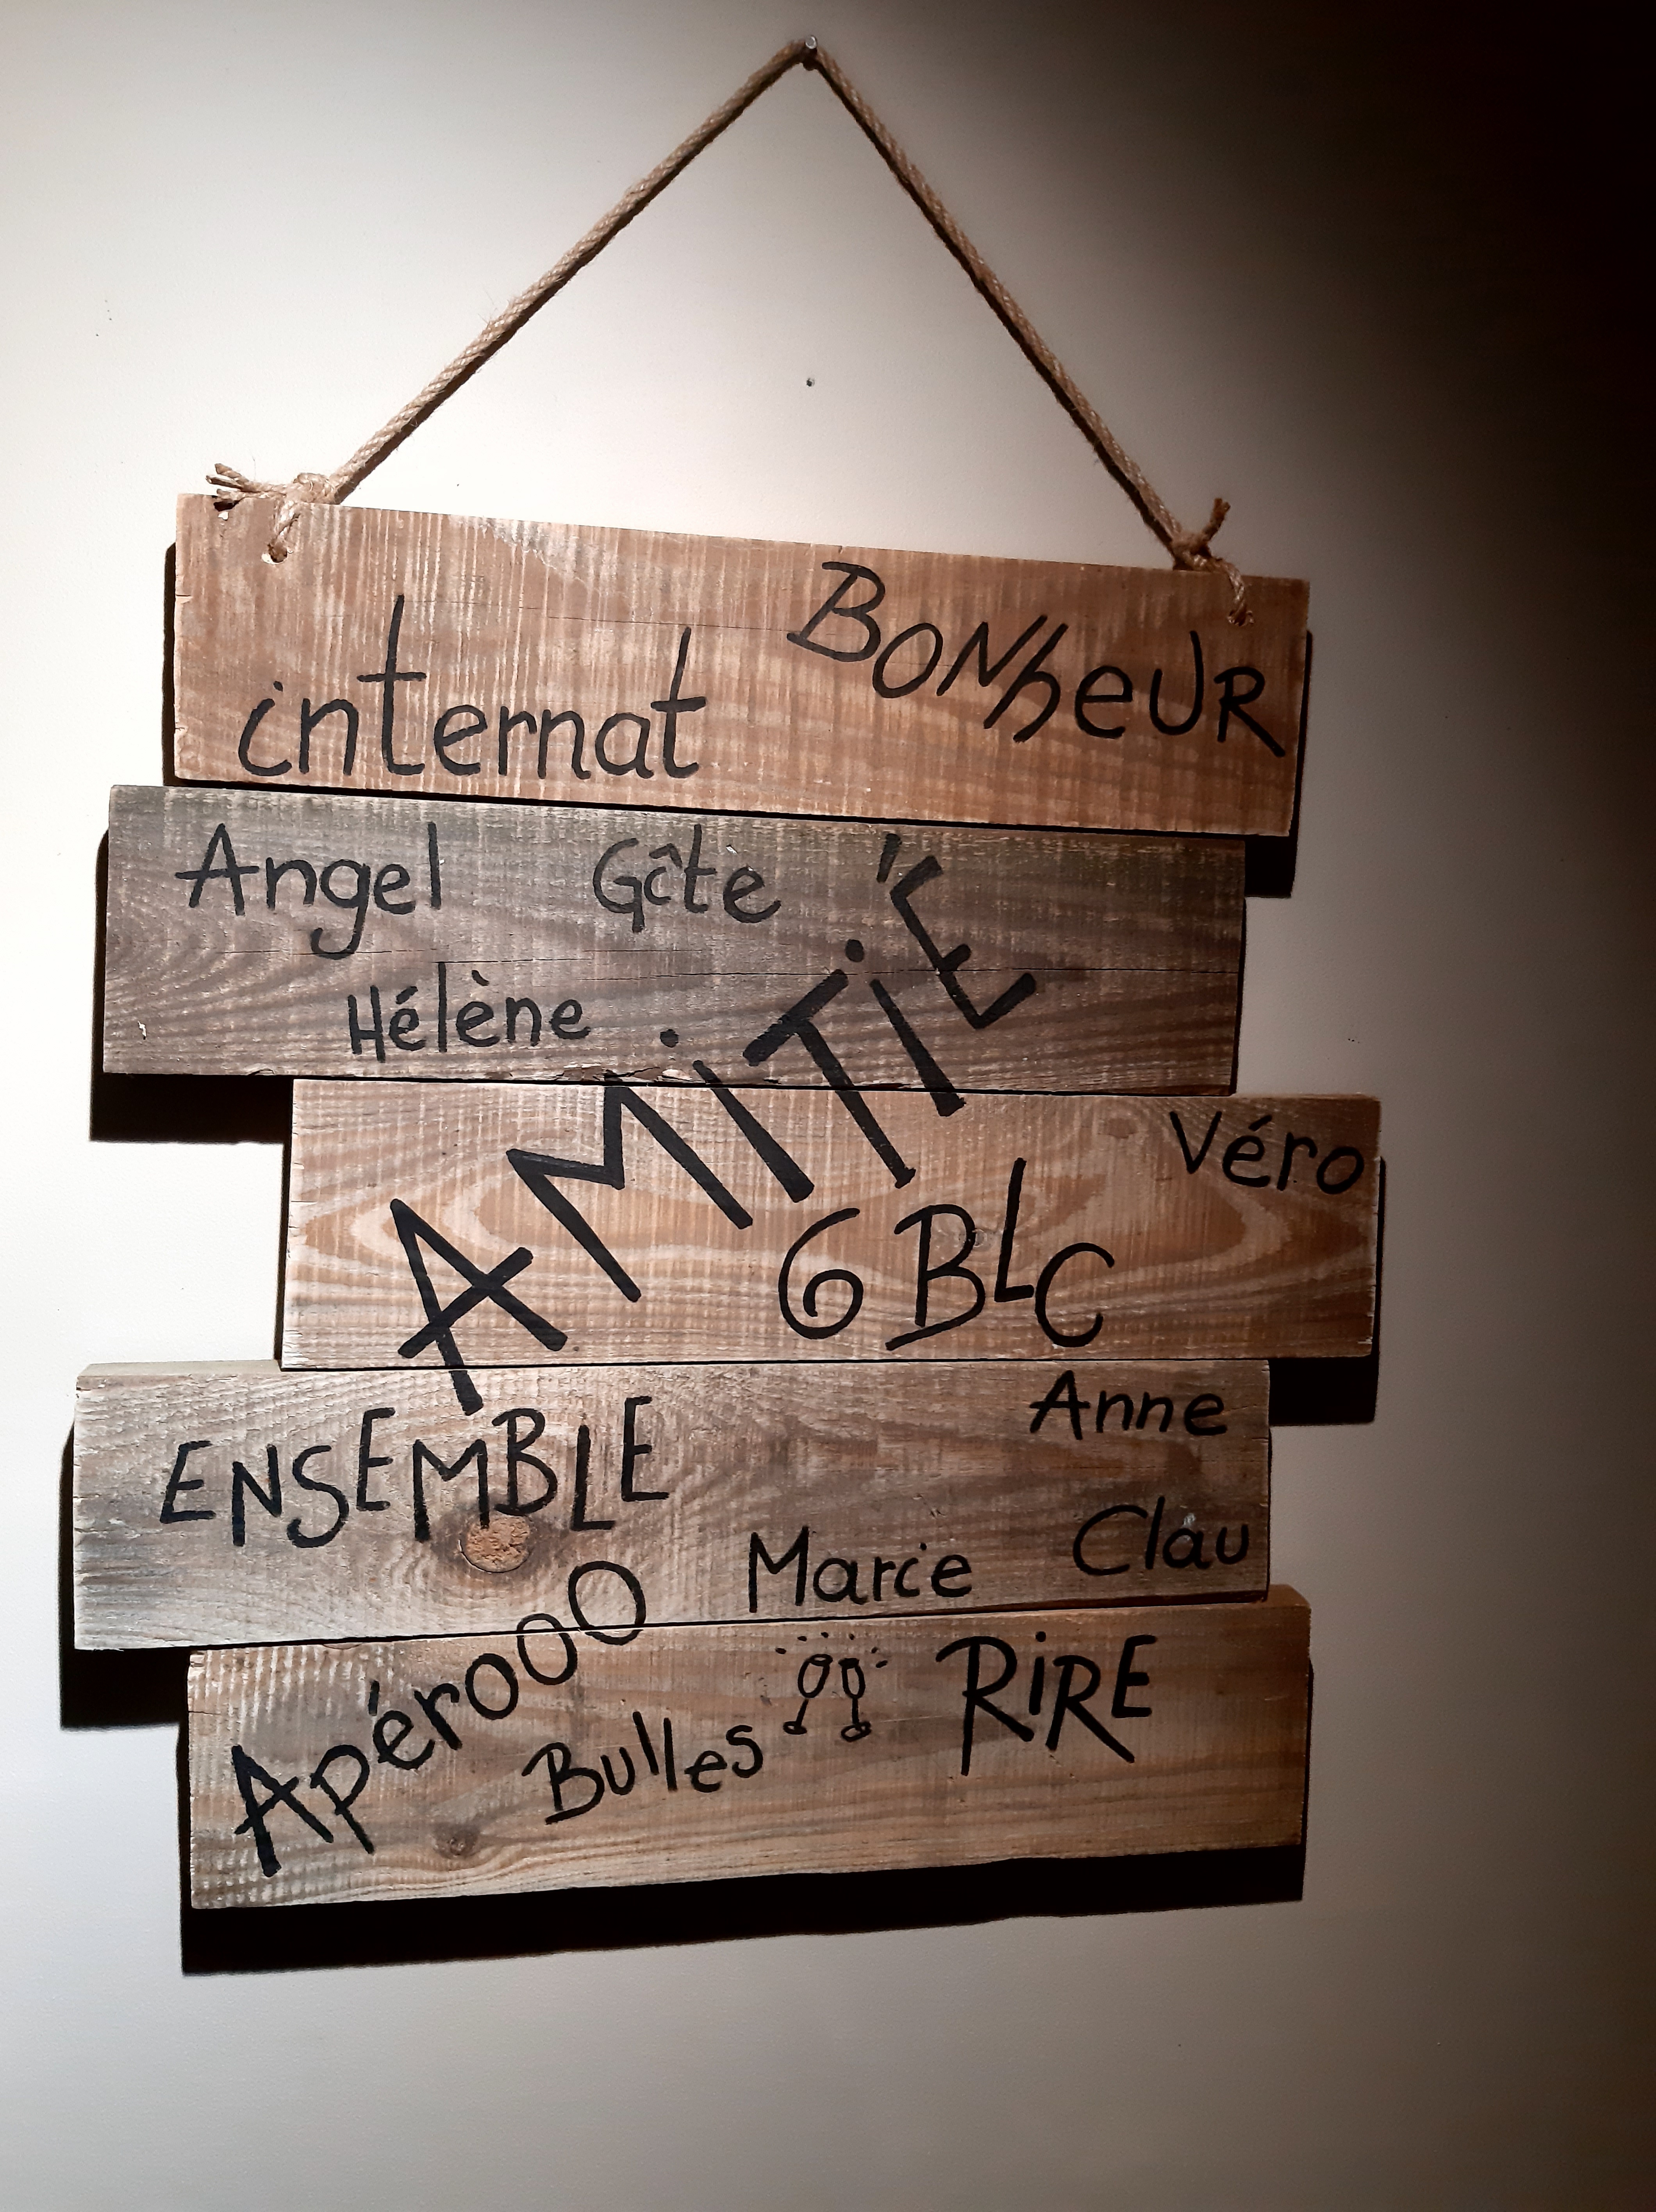 internat BONHEUR
Angel Gîte
Hélène
AMITIÉ
Véro
6 BLC
Anne
ENSEMBLE
Clau
Marcie
Apérooo
Bulles
RIRE